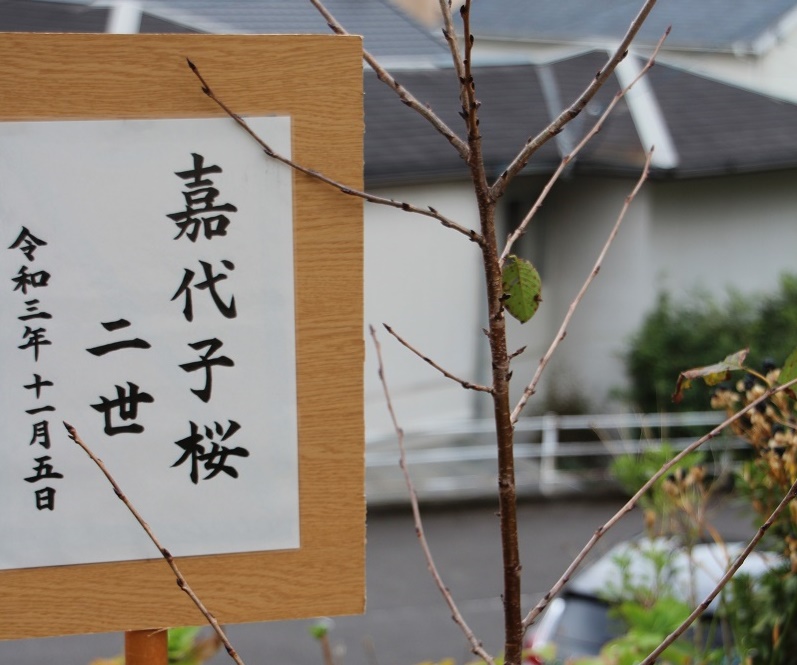 嘉代子桜
二世
令和三年十一月五日